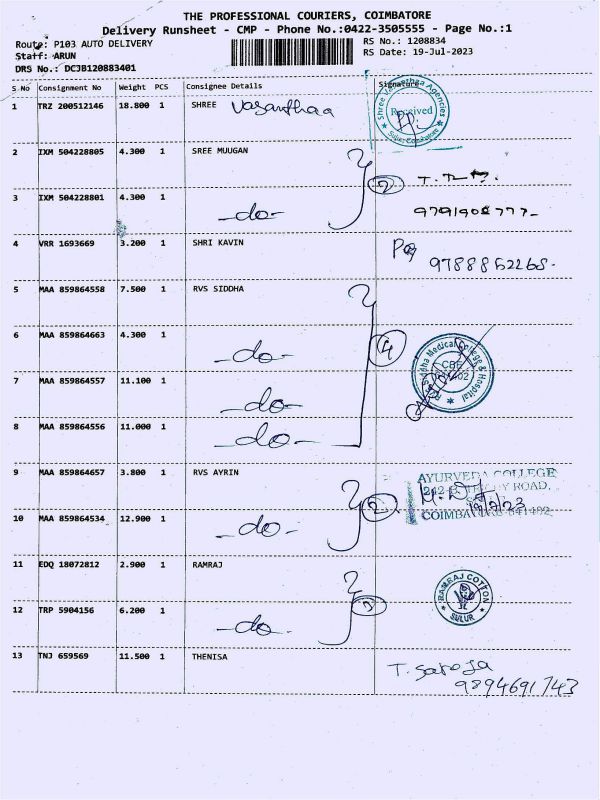 THE PROFESSIONAL COURIERS, COIMBATORE
Delivery Runsheet - CMP - Phone No.:0422-3505555 - Page No.:1
Route: P103 AUTO DELIVERY RS No.: 1208834
Staff: ARUN RS Date: 19-Jul-2023
DRS No.: DCJB120883401
S No Consignment No Weight PCS Consignee Details Signature
1 TRZ 200512146 18.800 1 SHREE Vasanthaa
Shree Vasanthaa Agencies
Received
Sulur Coimbatore
2 IXM 504228805 4.300 1 SREE MUUGAN
2
3 IXM 504228801 4.300 1 -do-
4 VRR 1693669 3.200 1 SHRI KAVIN
5 MAA 859864558 7.500 1 RVS SIDDHA
6 MAA 859864663 4.300 1 -do- 4
Siddha Medical College & Hospital
7 MAA 859864557 11.100 1 -do-
8 MAA 859864556 11.000 1 -do-
9 MAA 859864657 3.800 1 RVS AYRIN
AYURVEDA COLLEGE
ROAD,
2
10 MAA 859864534 12.900 1 -do-
11 EDQ 18072812 2.900 1 RAMRAJ
RAMRAJ COTTON
SULUR
12 TRP 5904156 6.200 1 -do-
13 TNJ 659569 11.500 1 THENISA T. Saroja
9894691743